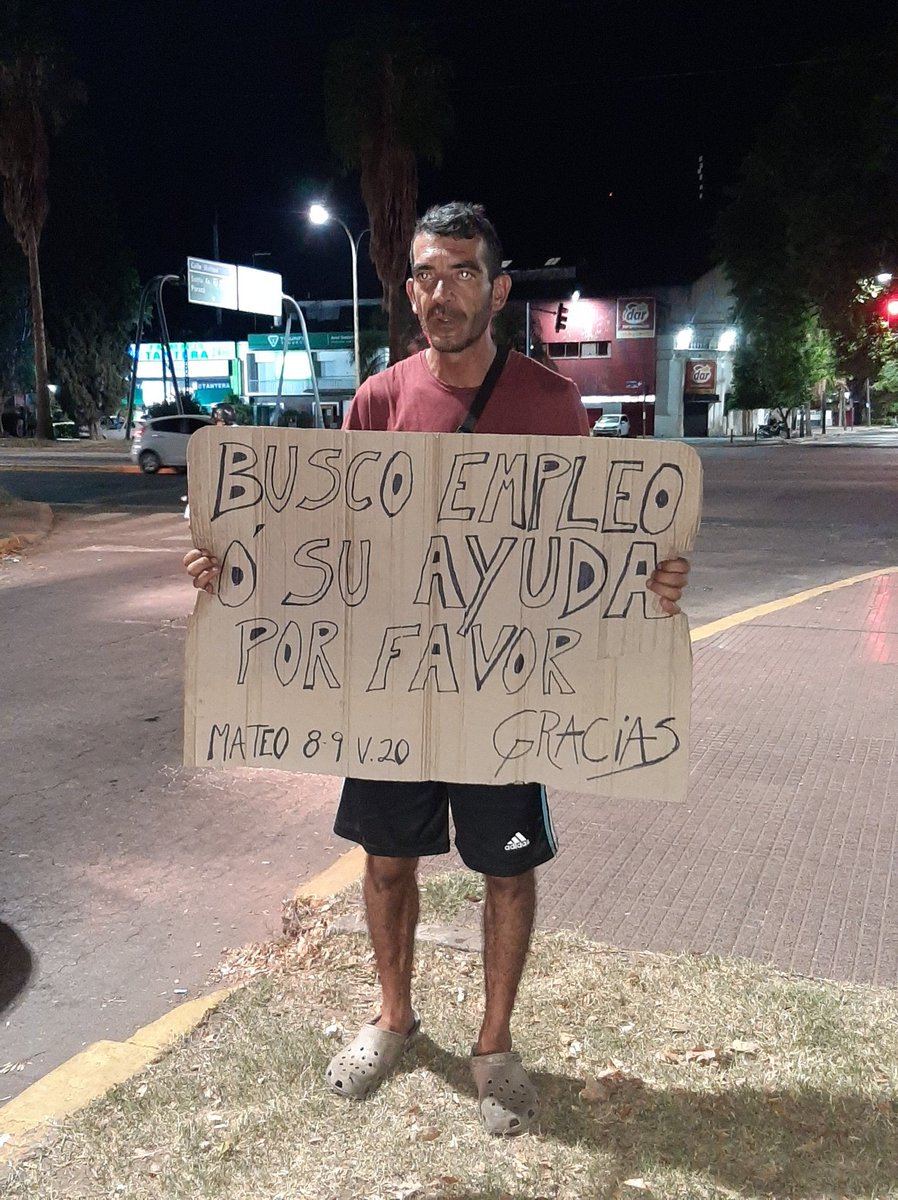 BUSCO EMPLEO
Ó SU AYUDA
POR FAVOR
MATEO 8-9 V.20
GRACIAS
adidas
dar
dar
TANTERA